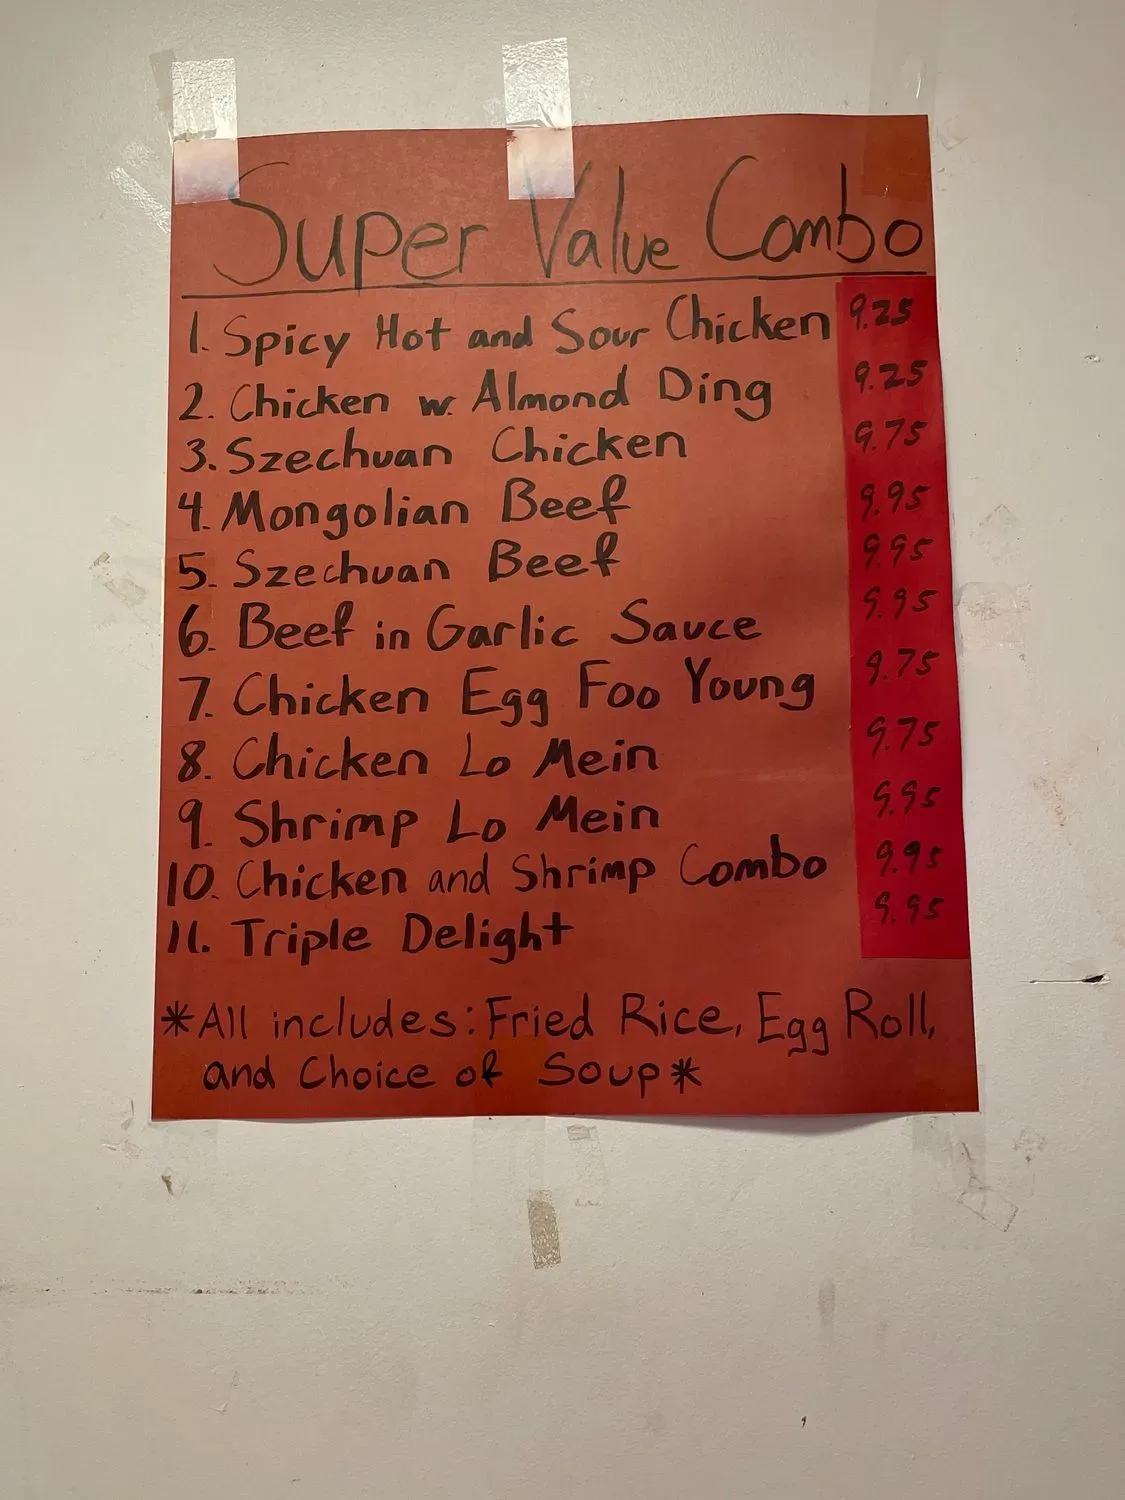 Super Value Combo
1. Spicy Hot and Sour Chicken 9.25
2. Chicken w. Almond Ding 9.25
3. Szechuan Chicken 9.75
4. Mongolian Beef 9.95
5. Szechuan Beef 9.95
6. Beef in Garlic Sauce 9.95
7. Chicken Egg Foo Young 9.75
8. Chicken Lo Mein 9.75
9. Shrimp Lo Mein 9.95
10. Chicken and Shrimp Combo 9.95
11. Triple Delight 9.95
*All includes: Fried Rice, Egg Roll,
and Choice of Soup*